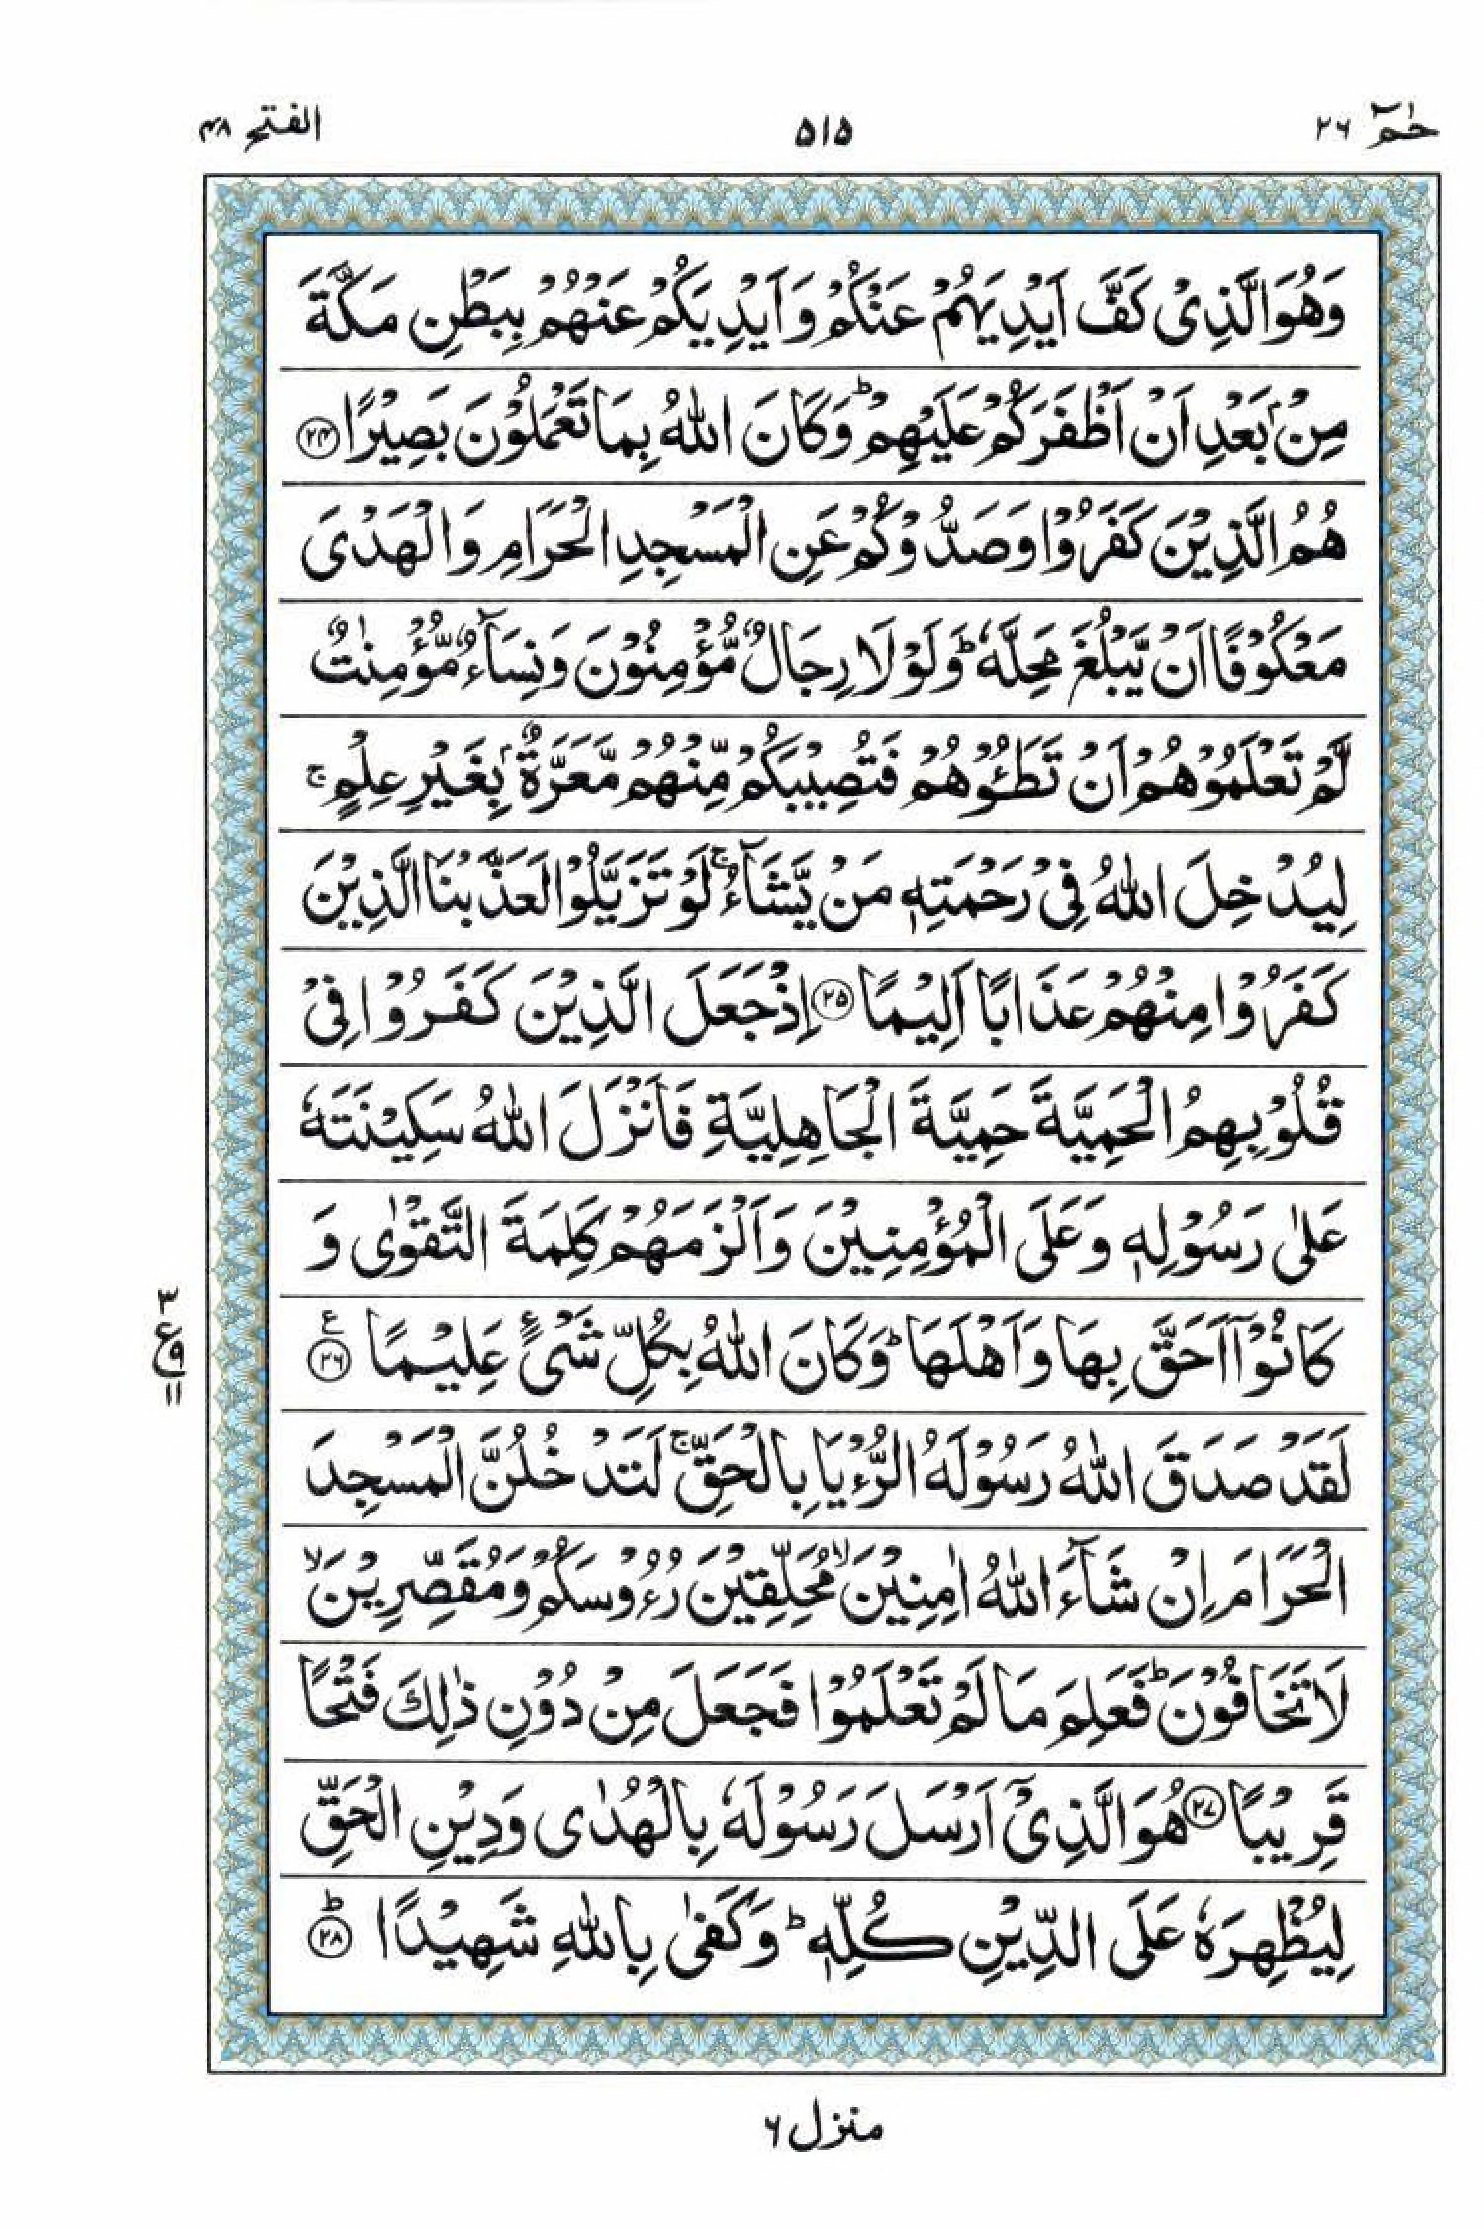 حٰمٓ ٢٦
٥١٥
الفتح ٤٨
وَهُوَ الَّذِیْ كَفَّ اَیْدِیَهُمْ عَنْكُمْ وَ اَیْدِیَكُمْ عَنْهُمْ بِبَطْنِ مَكَّةَ
مِنْۢ بَعْدِ اَنْ اَظْفَرَكُمْ عَلَیْهِمْؕ وَ كَانَ اللّٰهُ بِمَا تَعْمَلُوْنَ بَصِیْرًا ﴿٢٤﴾
هُمُ الَّذِیْنَ كَفَرُوْا وَ صَدُّوْكُمْ عَنِ الْمَسْجِدِ الْحَرَامِ وَ الْهَدْیَ
مَعْكُوْفًا اَنْ یَّبْلُغَ مَحِلَّهٗؕ وَ لَوْ لَا رِجَالٌ مُّؤْمِنُوْنَ وَ نِسَآءٌ مُّؤْمِنٰتٌ
لَّمْ تَعْلَمُوْهُمْ اَنْ تَطَـُٔوْهُمْ فَتُصِیْبَكُمْ مِّنْهُمْ مَّعَرَّةٌۢ بِغَیْرِ عِلْمٍۚ
لِیُدْخِلَ اللّٰهُ فِیْ رَحْمَتِهٖ مَنْ یَّشَآءُۚ لَوْ تَزَیَّلُوْا لَعَذَّبْنَا الَّذِیْنَ
كَفَرُوْا مِنْهُمْ عَذَابًا اَلِیْمًا ﴿٢٥﴾ اِذْ جَعَلَ الَّذِیْنَ كَفَرُوْا فِیْ
قُلُوْبِهِمُ الْحَمِیَّةَ حَمِیَّةَ الْجَاهِلِیَّةِ فَاَنْزَلَ اللّٰهُ سَكِیْنَتَهٗ
عَلٰی رَسُوْلِهٖ وَ عَلَی الْمُؤْمِنِیْنَ وَ اَلْزَمَهُمْ كَلِمَةَ التَّقْوٰی وَ
كَانُوْۤا اَحَقَّ بِهَا وَ اَهْلَهَاؕ وَ كَانَ اللّٰهُ بِكُلِّ شَیْءٍ عَلِیْمًا ﴿٢٦﴾ ع
٣
ع ٩
١١
لَقَدْ صَدَقَ اللّٰهُ رَسُوْلَهُ الرُّءْیَا بِالْحَقِّۚ لَتَدْخُلُنَّ الْمَسْجِدَ
الْحَرَامَ اِنْ شَآءَ اللّٰهُ اٰمِنِیْنَۙ مُحَلِّقِیْنَ رُءُوْسَكُمْ وَ مُقَصِّرِیْنَۙ
لَا تَخَافُوْنَؕ فَعَلِمَ مَا لَمْ تَعْلَمُوْا فَجَعَلَ مِنْ دُوْنِ ذٰلِكَ فَتْحًا
قَرِیْبًا ﴿٢٧﴾ هُوَ الَّذِیْۤ اَرْسَلَ رَسُوْلَهٗ بِالْهُدٰی وَ دِیْنِ الْحَقِّ
لِیُظْهِرَهٗ عَلَی الدِّیْنِ كُلِّهٖؕ وَ كَفٰی بِاللّٰهِ شَهِیْدًا ﴿٢٨﴾ؕ
منزل ٦